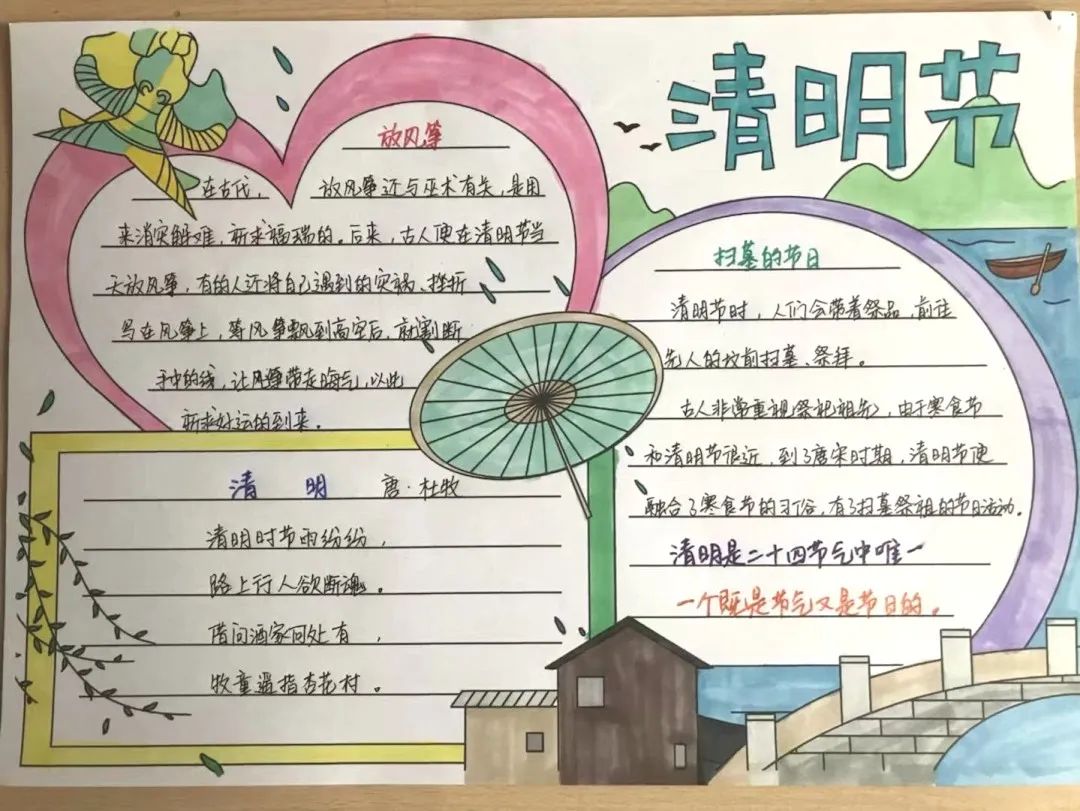 清明节
放风筝
在古代， 放风筝还与巫术有关，是用
来消灾解难，祈求福瑞的。后来，古人便在清明节当
天放风筝，有的人还将自己遇到的灾祸、挫折
写在风筝上，等风筝飘到高空后，就割断
手中的线，让风筝带走晦气，以此
祈求好运的到来。
清 明 唐·杜牧
清明时节雨纷纷，
路上行人欲断魂。
借问酒家何处有，
牧童遥指杏花村。
扫墓的节日
清明节时，人们会带着祭品，前往
先人的坟前扫墓、祭拜。
古人非常重视祭祀祖先，由于寒食节
和清明节很近，到了唐宋时期，清明节便
融合了寒食节的习俗，有了扫墓祭祖的节日活动。
清明是二十四节气中唯一
一个既是节气又是节日的。